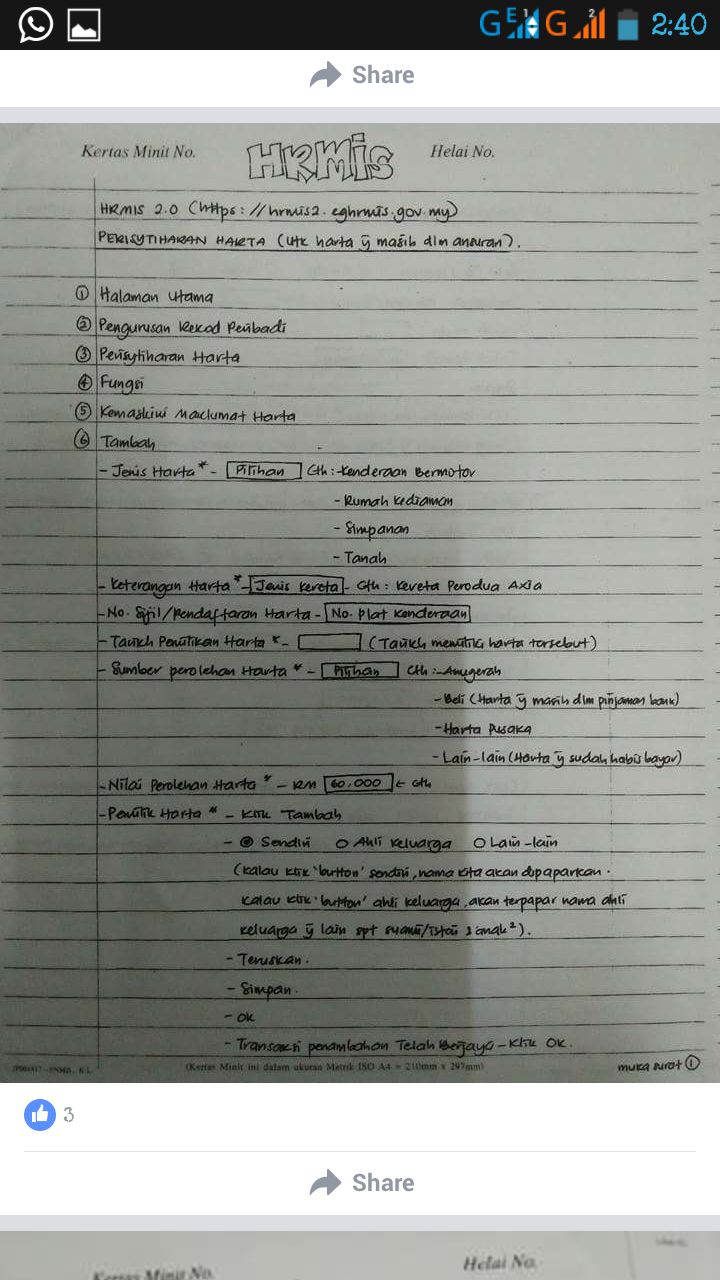 2:40
Share
Kertas Minit No.
HRMIS
Helai No.
HRMIS 2.0 (https://hrmis2.eghrmis.gov.my)
PERISYTIHARAN HARTA (utk harta ȳ masih dlm ansuran).
① Halaman Utama
② Pengurusan Rekod Peribadi
③ Perisytiharan Harta
④ Fungsi
⑤ Kemaskini Maklumat Harta
⑥ Tambah
- Jenis Harta* - Pilihan Cth :- Kenderaan Bermotor
- Rumah Kediaman
- Simpanan
- Tanah
- Keterangan Harta* - Jenis Kereta - Cth : Kereta Perodua Axia
- No. Sijil/Pendaftaran Harta - No. Plat Kenderaan
- Tarikh Pemilikan Harta * - (Tarikh memiliki harta tersebut)
- Sumber perolehan Harta * - Pilihan Cth :- Anugerah
- Beli (Harta ȳ masih dlm pinjaman bank)
- Harta Pusaka
- Lain-lain (Harta ȳ sudah habis bayar)
- Nilai Perolehan Harta * - RM 60.000 ← Cth
- Pemilik Harta * - Klik Tambah
- ◉ Sendiri ○ Ahli Keluarga ○ Lain-lain
(Kalau klik 'button' sendiri, nama kita akan dipaparkan.
Kalau klik 'button' ahli keluarga, akan terpapar nama ahli
keluarga ȳ lain spt suami/isteri & anak²).
- Teruskan.
- Simpan.
- OK
- Transaksi penambahan Telah Berjaya - Klik OK.
(Kertas Minit ini dalam ukuran Metrik ISO A4 = 210mm x 297mm)
muka surat ①
3
Share
Kertas Minit No.
Helai No.